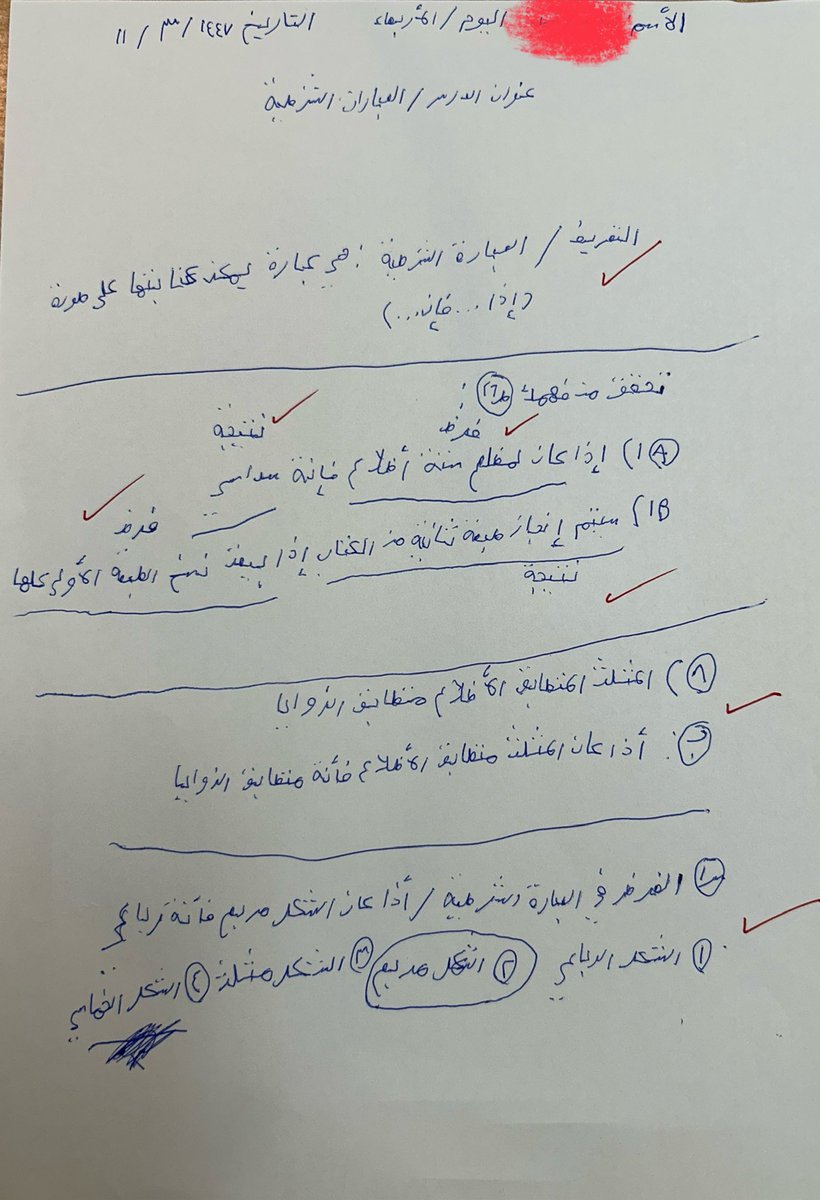 الأسم اليوم / الأربعاء التاريخ ١٤٤٧ / ٣ / ١١
عنوان الدرس / العبارات الشرطية
التعريف / العبارة الشرطية : هي عبارة يمكن كتابتها على صورة
(إذا ... فإن ...)
تحقق من فهمك ص٢٦ :
فرض نتيجة
1A) إذا كان لمضلع ستة أضلاع فإنة سداسي
فرض
1B) سيتم إنجاز طبعة ثانية من الكتاب إذا بيعت نسخ الطبعة الأولى كلها
نتيجة
٨) المثلث المتطابق الأضلاع متطابق الزوايا
ب: أذا كان المثلث متطابق الأضلاع فأنة متطابق الزواليا
س١ الفرض في العبارة الشرطية / أذا كان الشكل مربع فأنة رباعي
١ الشكل الرباعي ٢ الشكل مربع ٣ الشكل مثلث ٤ الشكل الخماسي